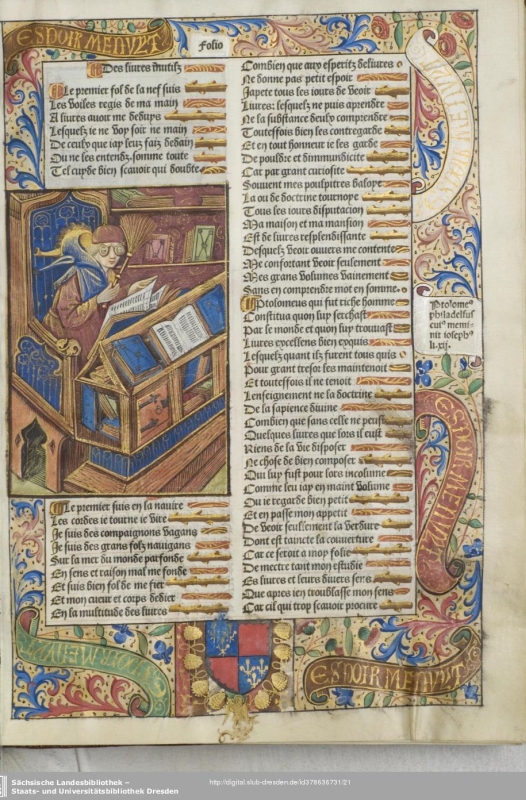 ESPOIR MEN VVT
Folio
Des liures inutilz
Le premier fol de la nef suis
Les voiles regis de ma main
A liures auoir me deduys
Lesquelz ie ne voy soir ne main
De ceulx que iay leuz faiz dedain
Ou ne les entendz, somme toute
Tel cuyde bien scauoir qui doubte
Le premier suis en la nauire
Les cordes ie tourne et vire
Je suis des compaignons vagans
Je suis des grans folz nauigans
Sur la mer du monde parfonde
En sens et raison mal me fonde
Et suis bien fol de me fier
Et mon cueur et corps dedier
En la multitude des liures
Combien que aux esperitz deliures
Ne donne pas petit espoir
Japete tous les iours de veoir
Liures: lesquelz ne puis aprendre
Ne la substance deulx comprendre
Toutesfois bien les contregarde
Et en tout honneur ie les garde
De pouldre et dimmundicite
Car par grant curiosite
Souuent mes poulpitres baloye
La ou de doctrine tournoye
Tous les iours disputacion
Ma maison et ma mansion
Est de liures resplendissante
Desquelz veoir ouuers me contente
Me confortant veoir seulement
Mes grans volumes vainement
Sans en comprendre mot en somme.
Ptolomeus qui fut riche homme
Constitua quon luy serchast
Par le monde et quon luy trouuast
Liures excellens bien exquis
Lesquelz quant ilz furent tous quis
Pour grant tresor les maintenoit
Et toutesfois il ne tenoit
Lenseignement ne la doctrine
De la sapience diuine
Combien que sans celle ne peust
Quelques liures que lors il eust
Riens de la vie disposer
Ne chose de bien composer
Qui luy fust pour lors incolume
Comme leu iay en maint volume
Ou ie regarde bien petit
Et en passe mon appetit
De veoir seullement la verdure
Dont est taincte la couuerture
Car ce seroit a moy folie
De mectre tant mon estudie
Es liures et leurs diuers sens
Que apres ien troublasse mon sens
Car cil qui trop scauoir procure
Ptolome9
philadelfus
cui9 memi-
nit ioseph9
li.xij.
ESPOIR MEN VVT
ESPOIR MEN VVT
Sächsische Landesbibliothek –
Staats- und Universitätsbibliothek Dresden
http://digital.slub-dresden.de/id378636731/21